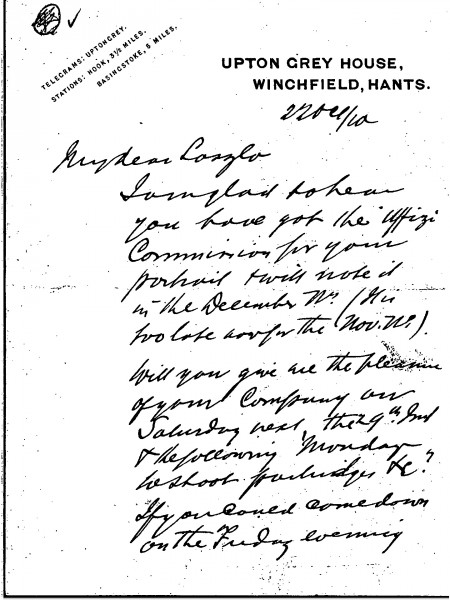 TELEGRAMS: UPTONGREY.
STATIONS: HOOK, 3½ MILES.
BASINGSTOKE, 5 MILES.
UPTON GREY HOUSE,
WINCHFIELD, HANTS.
22 Oct/10
My dear Laszlo
I am glad to hear
you have got the Uffizi
Commission for your
portrait & will note it
in the December No. (it is
too late now for the Nov. No.).
Will you give me the pleasure
of your Company on
Saturday next, the 29th Inst
& the following Monday
to shoot partridges &c."
If you could come down
on the Friday evening